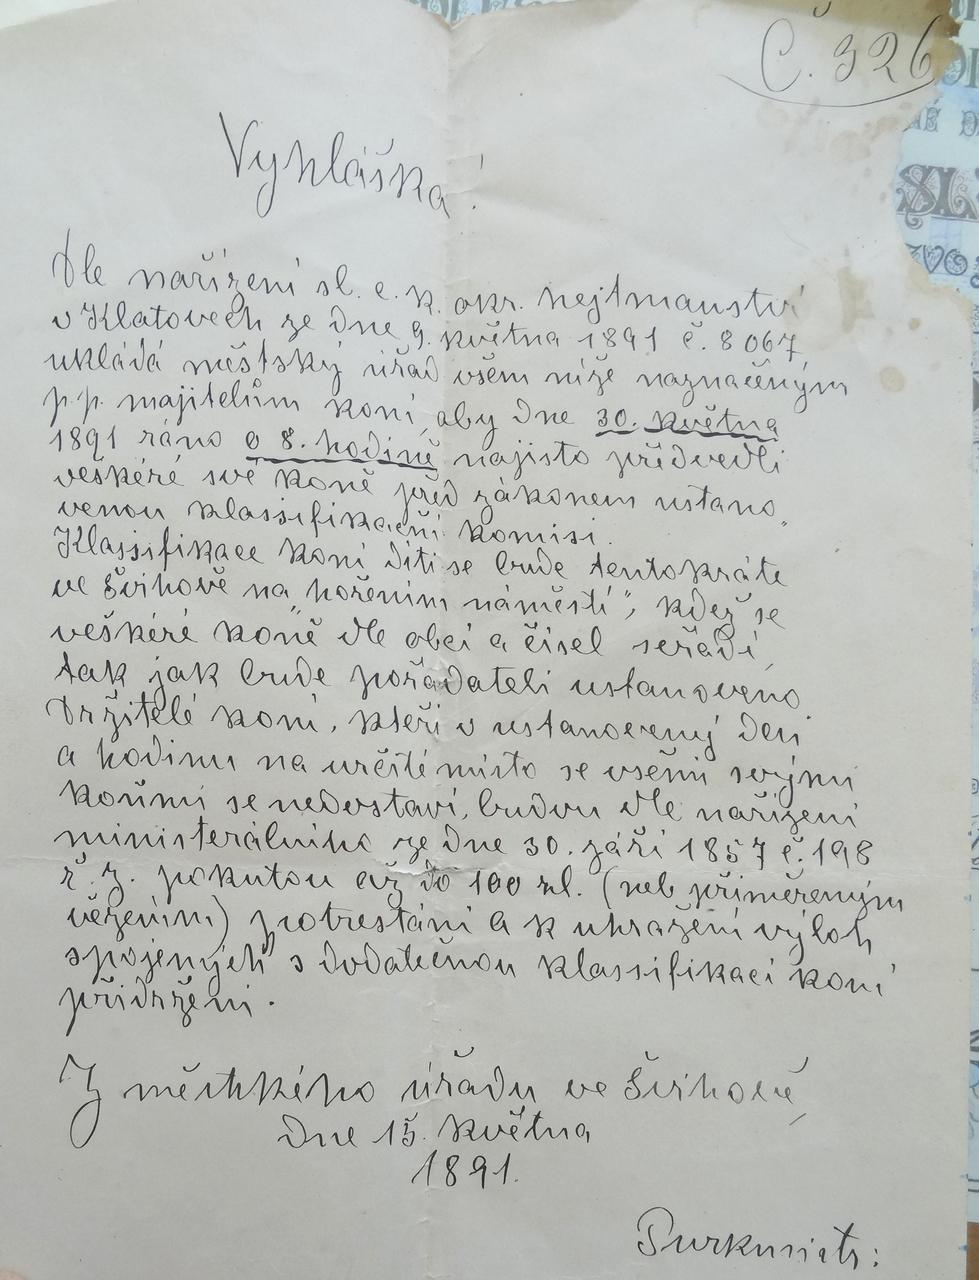 Č. 326
Vyhláška!
Dle nařízení sl. c. k. okr. hejtmanství
v Klatovech ze dne 9. května 1891 č. 8067,
ukládá městský úřad všem níže naznačeným
p.p. majitelům koní, aby dne 30. května
1891 ráno o 8. hodině najisto předvedli
veškéré své koně před zákonem ustano„
venou klassifikační komisi.
Klassifikace koní díti se bude tentokráte
ve Švihově na „hořením náměstí“, kdež se
veškéré koně dle obcí a čísel seřadí,
tak jak bude pořadateli ustanoveno.
Držitelé koní, kteří v ustanovený den
a hodinu na určité místo se všemi svými
koňmi se nedostaví, budou dle nařízení
ministerálního ze dne 30. září 1857 č. 198
ř. z. pokutou až do 100 zl. (neb přiměřeným
vězením) potrestáni a k uhražení výloh
spojených s dodatečnou klassifikací koní
přidrženi.
Z městského úřadu ve Švihově,
dne 15. května
1891.
Purkmistr: